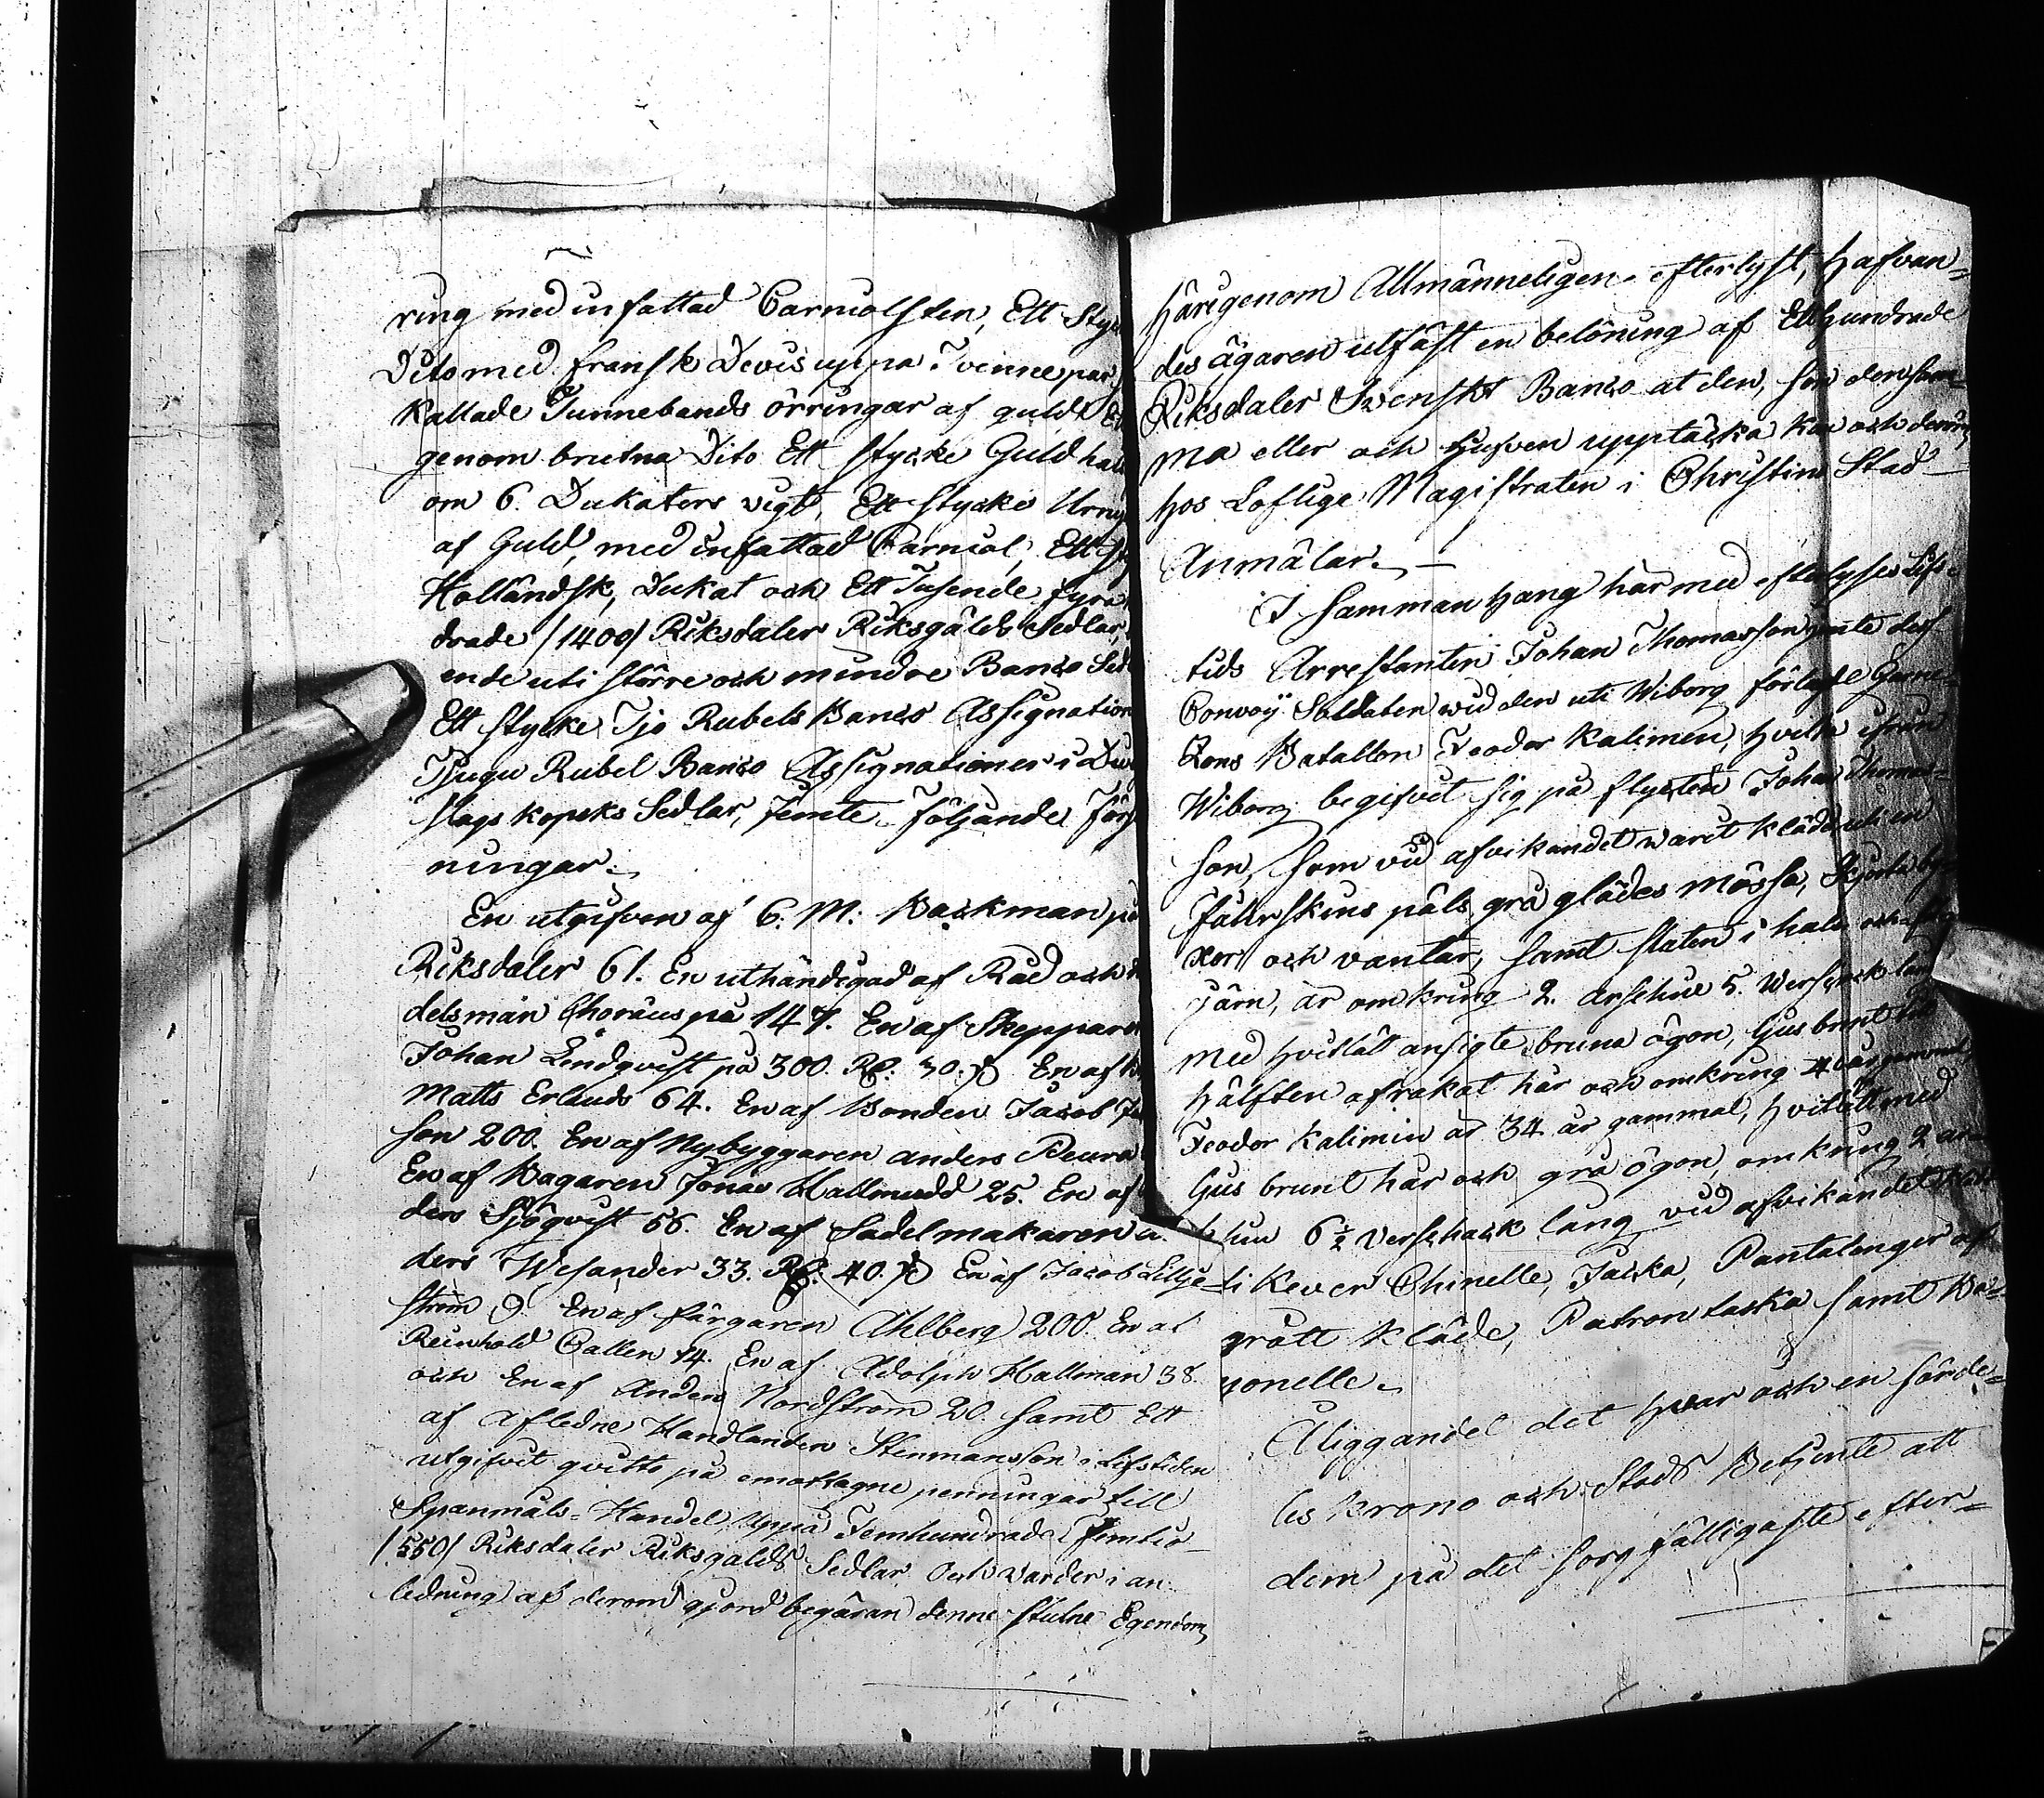 ring med infattad Carniolsten, Ett Sty
Dito med fransk Devis uppå. Tvenne par
Kallade Tunnebands örringar af guld
genom brutna Dito Ett stycke Guld
om 6. Dukaters vigt, Ett stycke
af Guld, med infattad Carniol, Ett
Holländsk, Dukat och Ett Tusende fyra
drade /1400/ Riksdaler Riksgälds Sedlar,
ende uti större och mindre Banco Sed
Ett stycke Tjo Rubels Banco Assignation
Tjugu Rubel Banco Assignationer i
slags kopeks Sedlar, jemte följande För
ningar.
En utgifven af C. M. Backman på
Riksdaler 61. En uthändigad af Råd och
delsman Choräus på 147. En af Skepparen
Johan Lindqvist på 300. Rd: 30. En af
Matts Erlands 64. En af Bonden Jacob
son 200. En af Nybyggaren Anders Peura
En af Bagaren Jonas Hallmudd 25. En af
ders Sjöqvist 56. En af Sadelmakaren
ders Wesander 33. Rd. 40. En af Jacob Lillje
ström 9. En af färgaren Ahlberg 200. En af
Reinhold Callen 14. En af Adolph Hallman 38.
och En af Anders Nordström 20. samt Ett
af Afledne Handlanden Stenmansson i Lifstiden
utgifvit qvitto på emottagne penningar till
Spanmåls-Handel, uppå Femhundrade Femtio
/550/ Riksdaler Riksgälds Sedlar. Och varder i an
ledning af derom gjord begäran denne stulne Egendom
härigenom Allmänneligen efterlyst, hafvan=
des ägaren utfäst en belöning af Etthundrade
Riksdaler Svenskt Banco at den, som densam=
ma eller och tjufven upptäcka kan och derom
hos Loflige Magistraten i Christine Stad
Anmälar.
I Sammanhang härmed efterlyses Lifs=
tids Arrestanten Johan Thomasson jemte dess
Convoij Soldaten wid den uti Wiborg förlagde Garni=
zons Batallon Feodor Kalimin, hvilka ifrån
Wiborg begifvit sig på flyckten Johan Thomas=
son, som vid afvikandet warit klädd uti en
fårskins päls grå klädes mössa,
xor och vantar, samt
järn, är omkring 2. arschin 5. Werschock lång
med hvitlätt ansigte bruna ögon, ljusbrunt till
hälften afrakat hår och omkring år gammal,
Feodor Kalimin är 34. år gammal, hvitlätt med
ljus brunt hår och grå ögon, omkring 2 ar=
schin 6 1/2 Verschack lång vid afvikandet
ti Kever Chinelle, Jacka, Pantalonger af
grått kläde, Patrontaska samt Ba=
yonelle.
Åliggandel det hvar och en särde=
les krono och Stads Betjente att
dem på det sorgfälligaste efter=